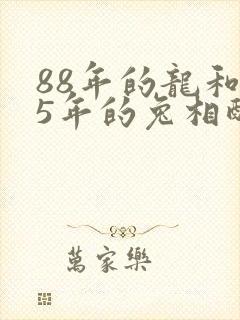 88年的龍和
5年的兔相
萬家樂